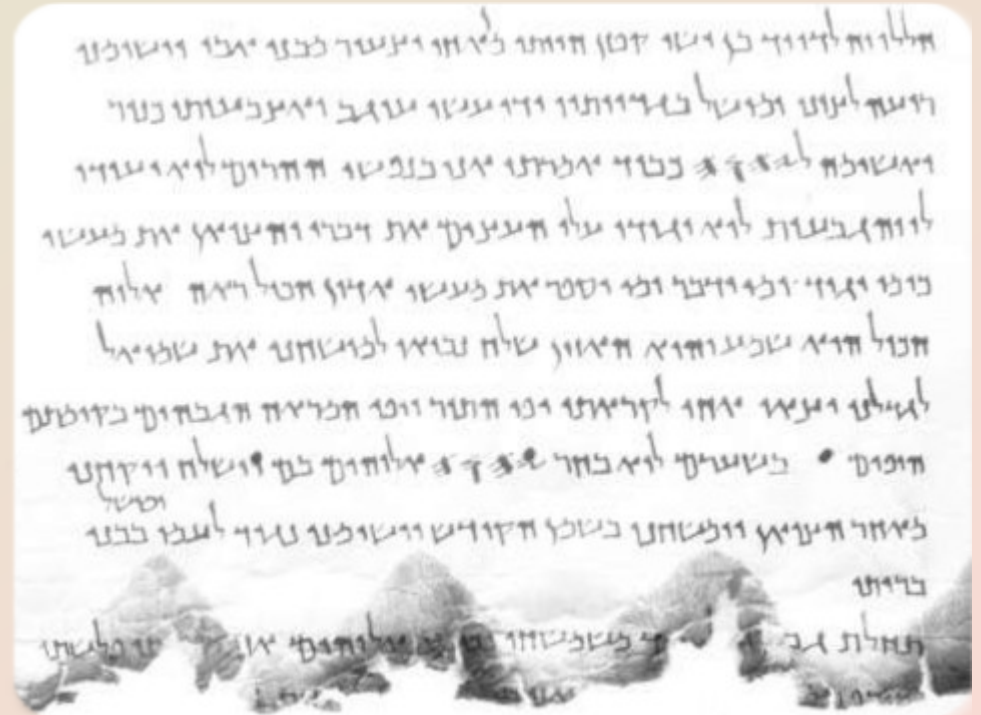 הללויה לדויד בן ישי קטן הייתי מאחי וצעיר מבני אבי וישימני
רועה לצונו ומושל בגדיותיו ידי עשו עוגב ואצבעותי כנור
ואשימה ל𐤉𐤄𐤅𐤄 כבוד אמרתי אני בנפשי ההרים לוא יעידו
לי והגבעות לוא יגידו עלו העצים את דברי והצואן את מעשי
כי מי יגיד ומי ידבר ומי יספר את מעשי אדון הכול ראה אלוה
הכול הוא שמע והוא האזין שלח נביאו למושחני את שמואל
לגדלני יצאו אחי לקראתו יפי התור ויפי המראה הגבהים בקומתם
היפים בשערם לוא בחר 𐤉𐤄𐤅𐤄 אלוהים בם וישלח ויקחני
ומושל
מאחר הצואן וימשחני בשמן הקודש וישימני נגיד לעמו בבני
בריתו
תחלת משמשחו אלוהים פלשתי